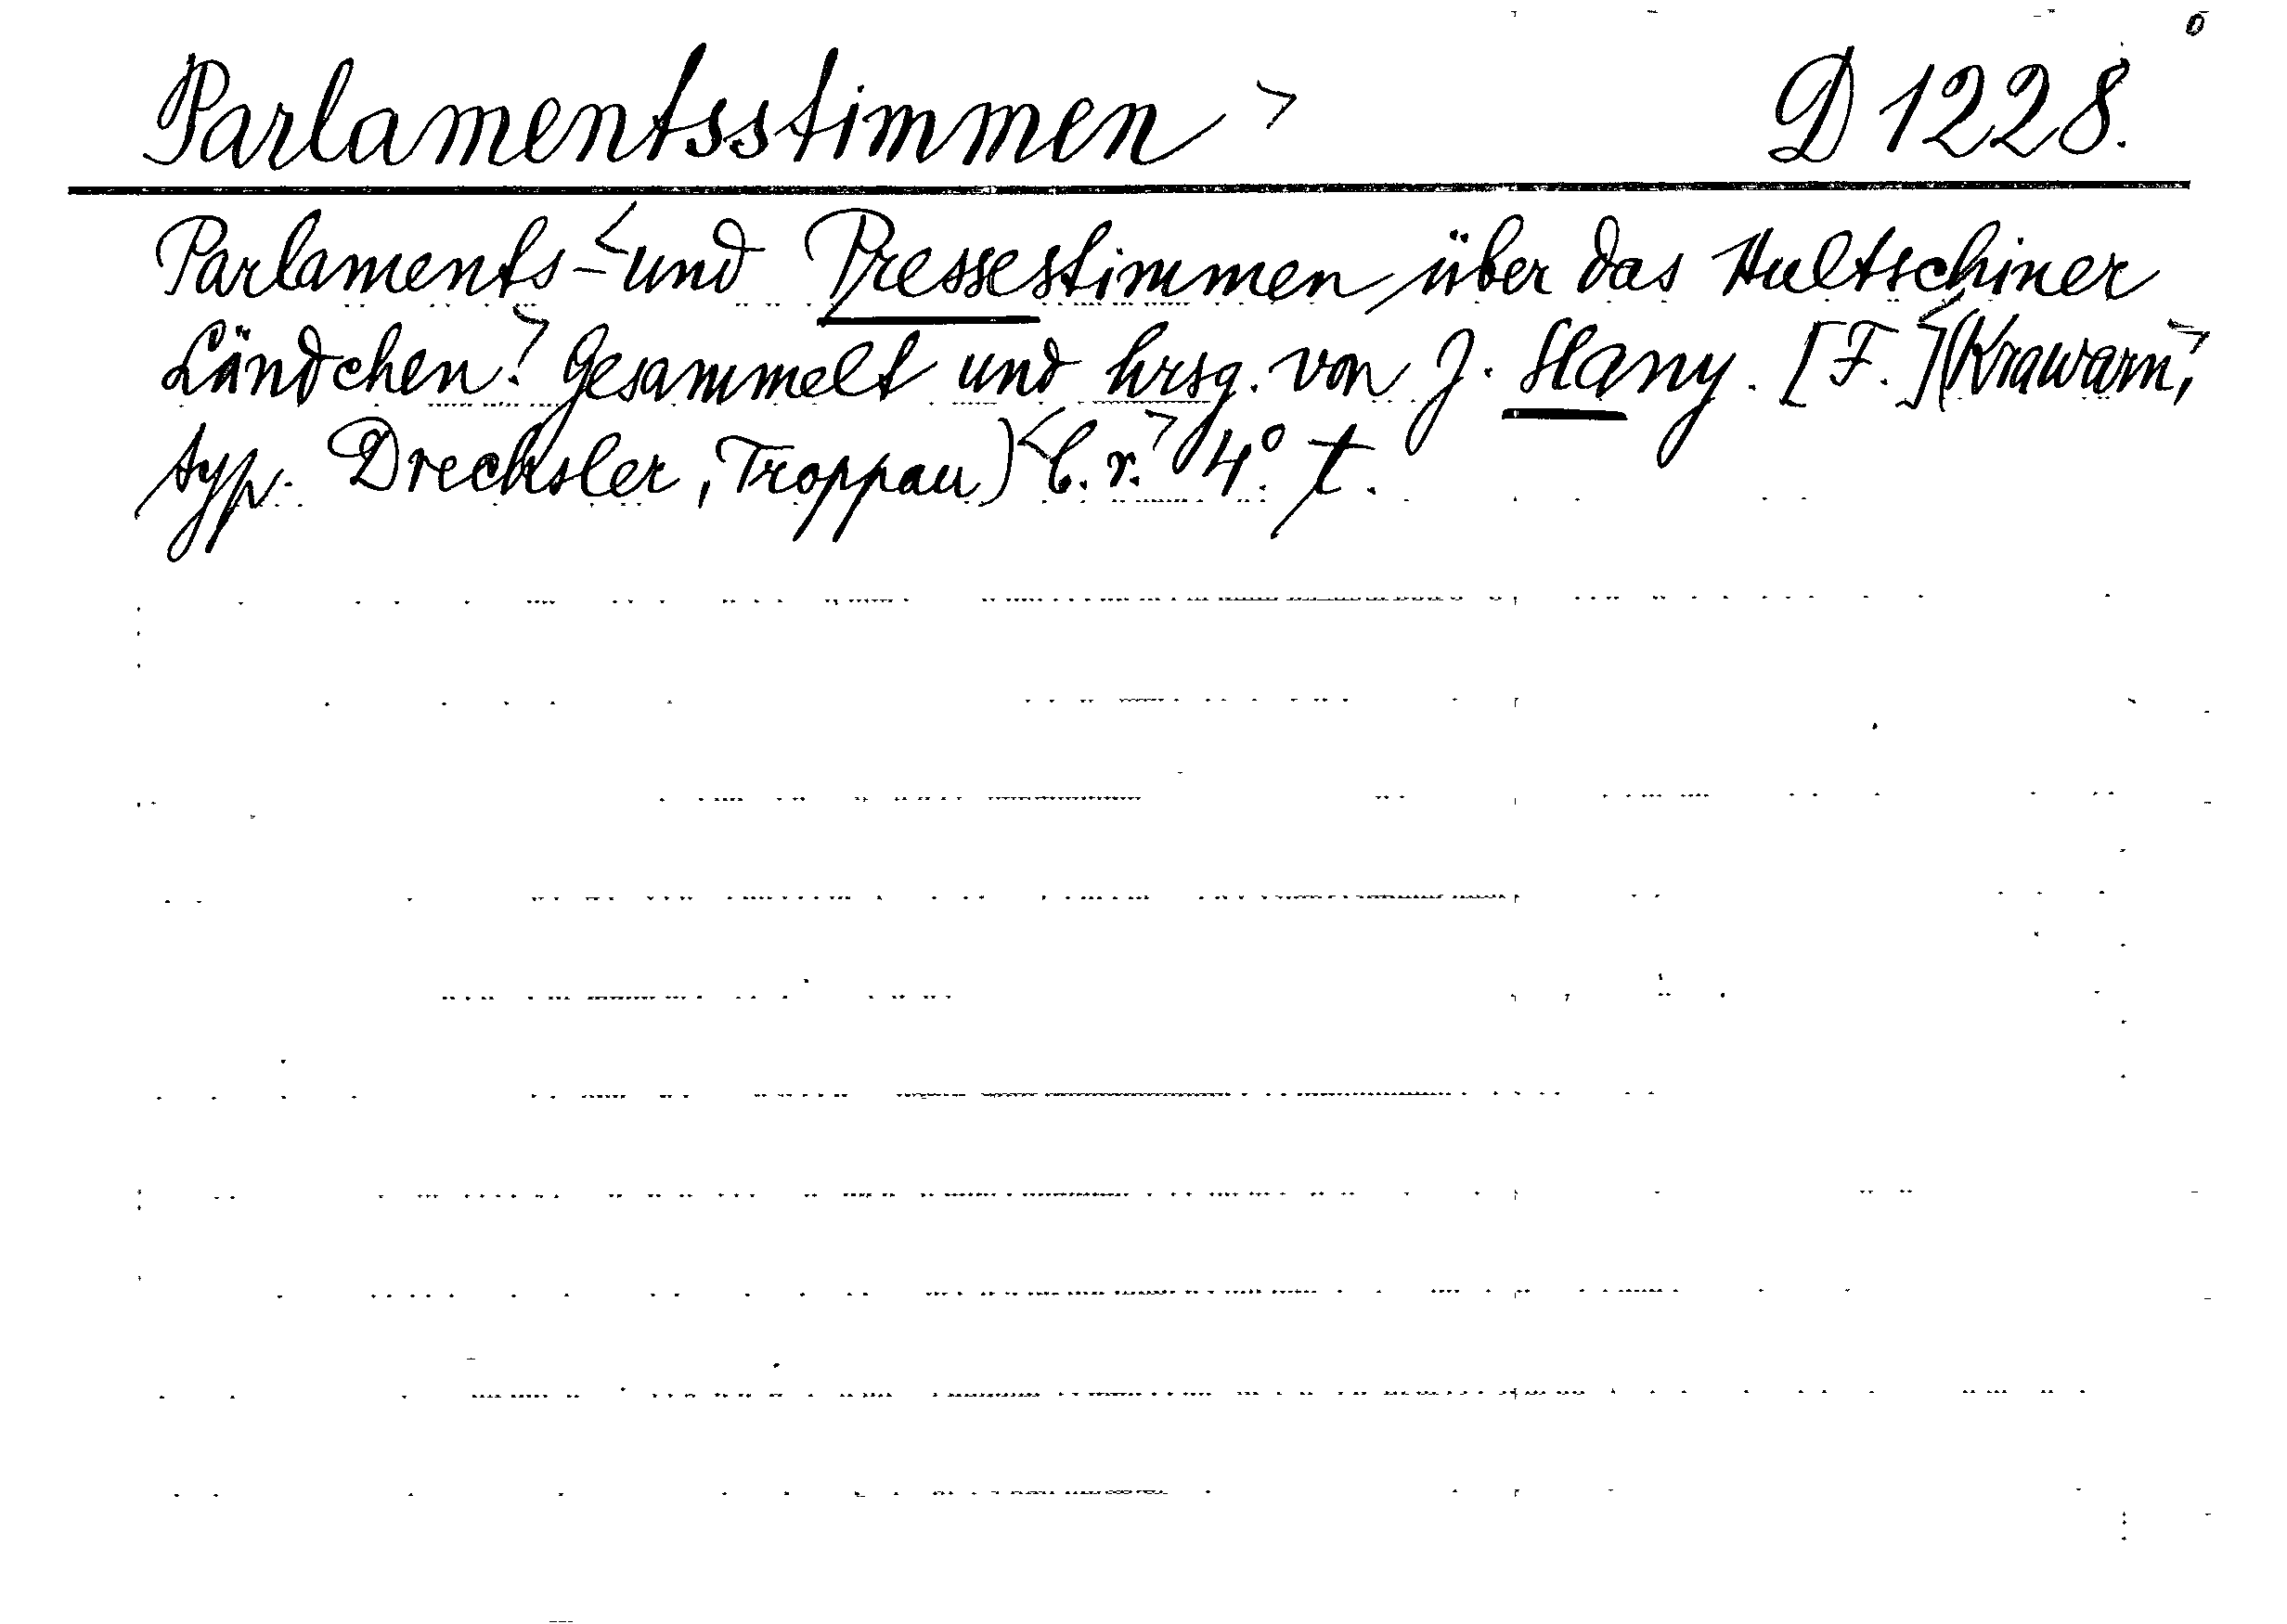 Parlamentsstimmen > D 1228.
Parlaments-<und Pressestimmen über das Hultschiner
Ländchen.> Gesammelt und hrsg. von J. Slany. [F.]<(Krawarn,>
typ. Drechsler, Troppau)<b. r.> 4°. t.